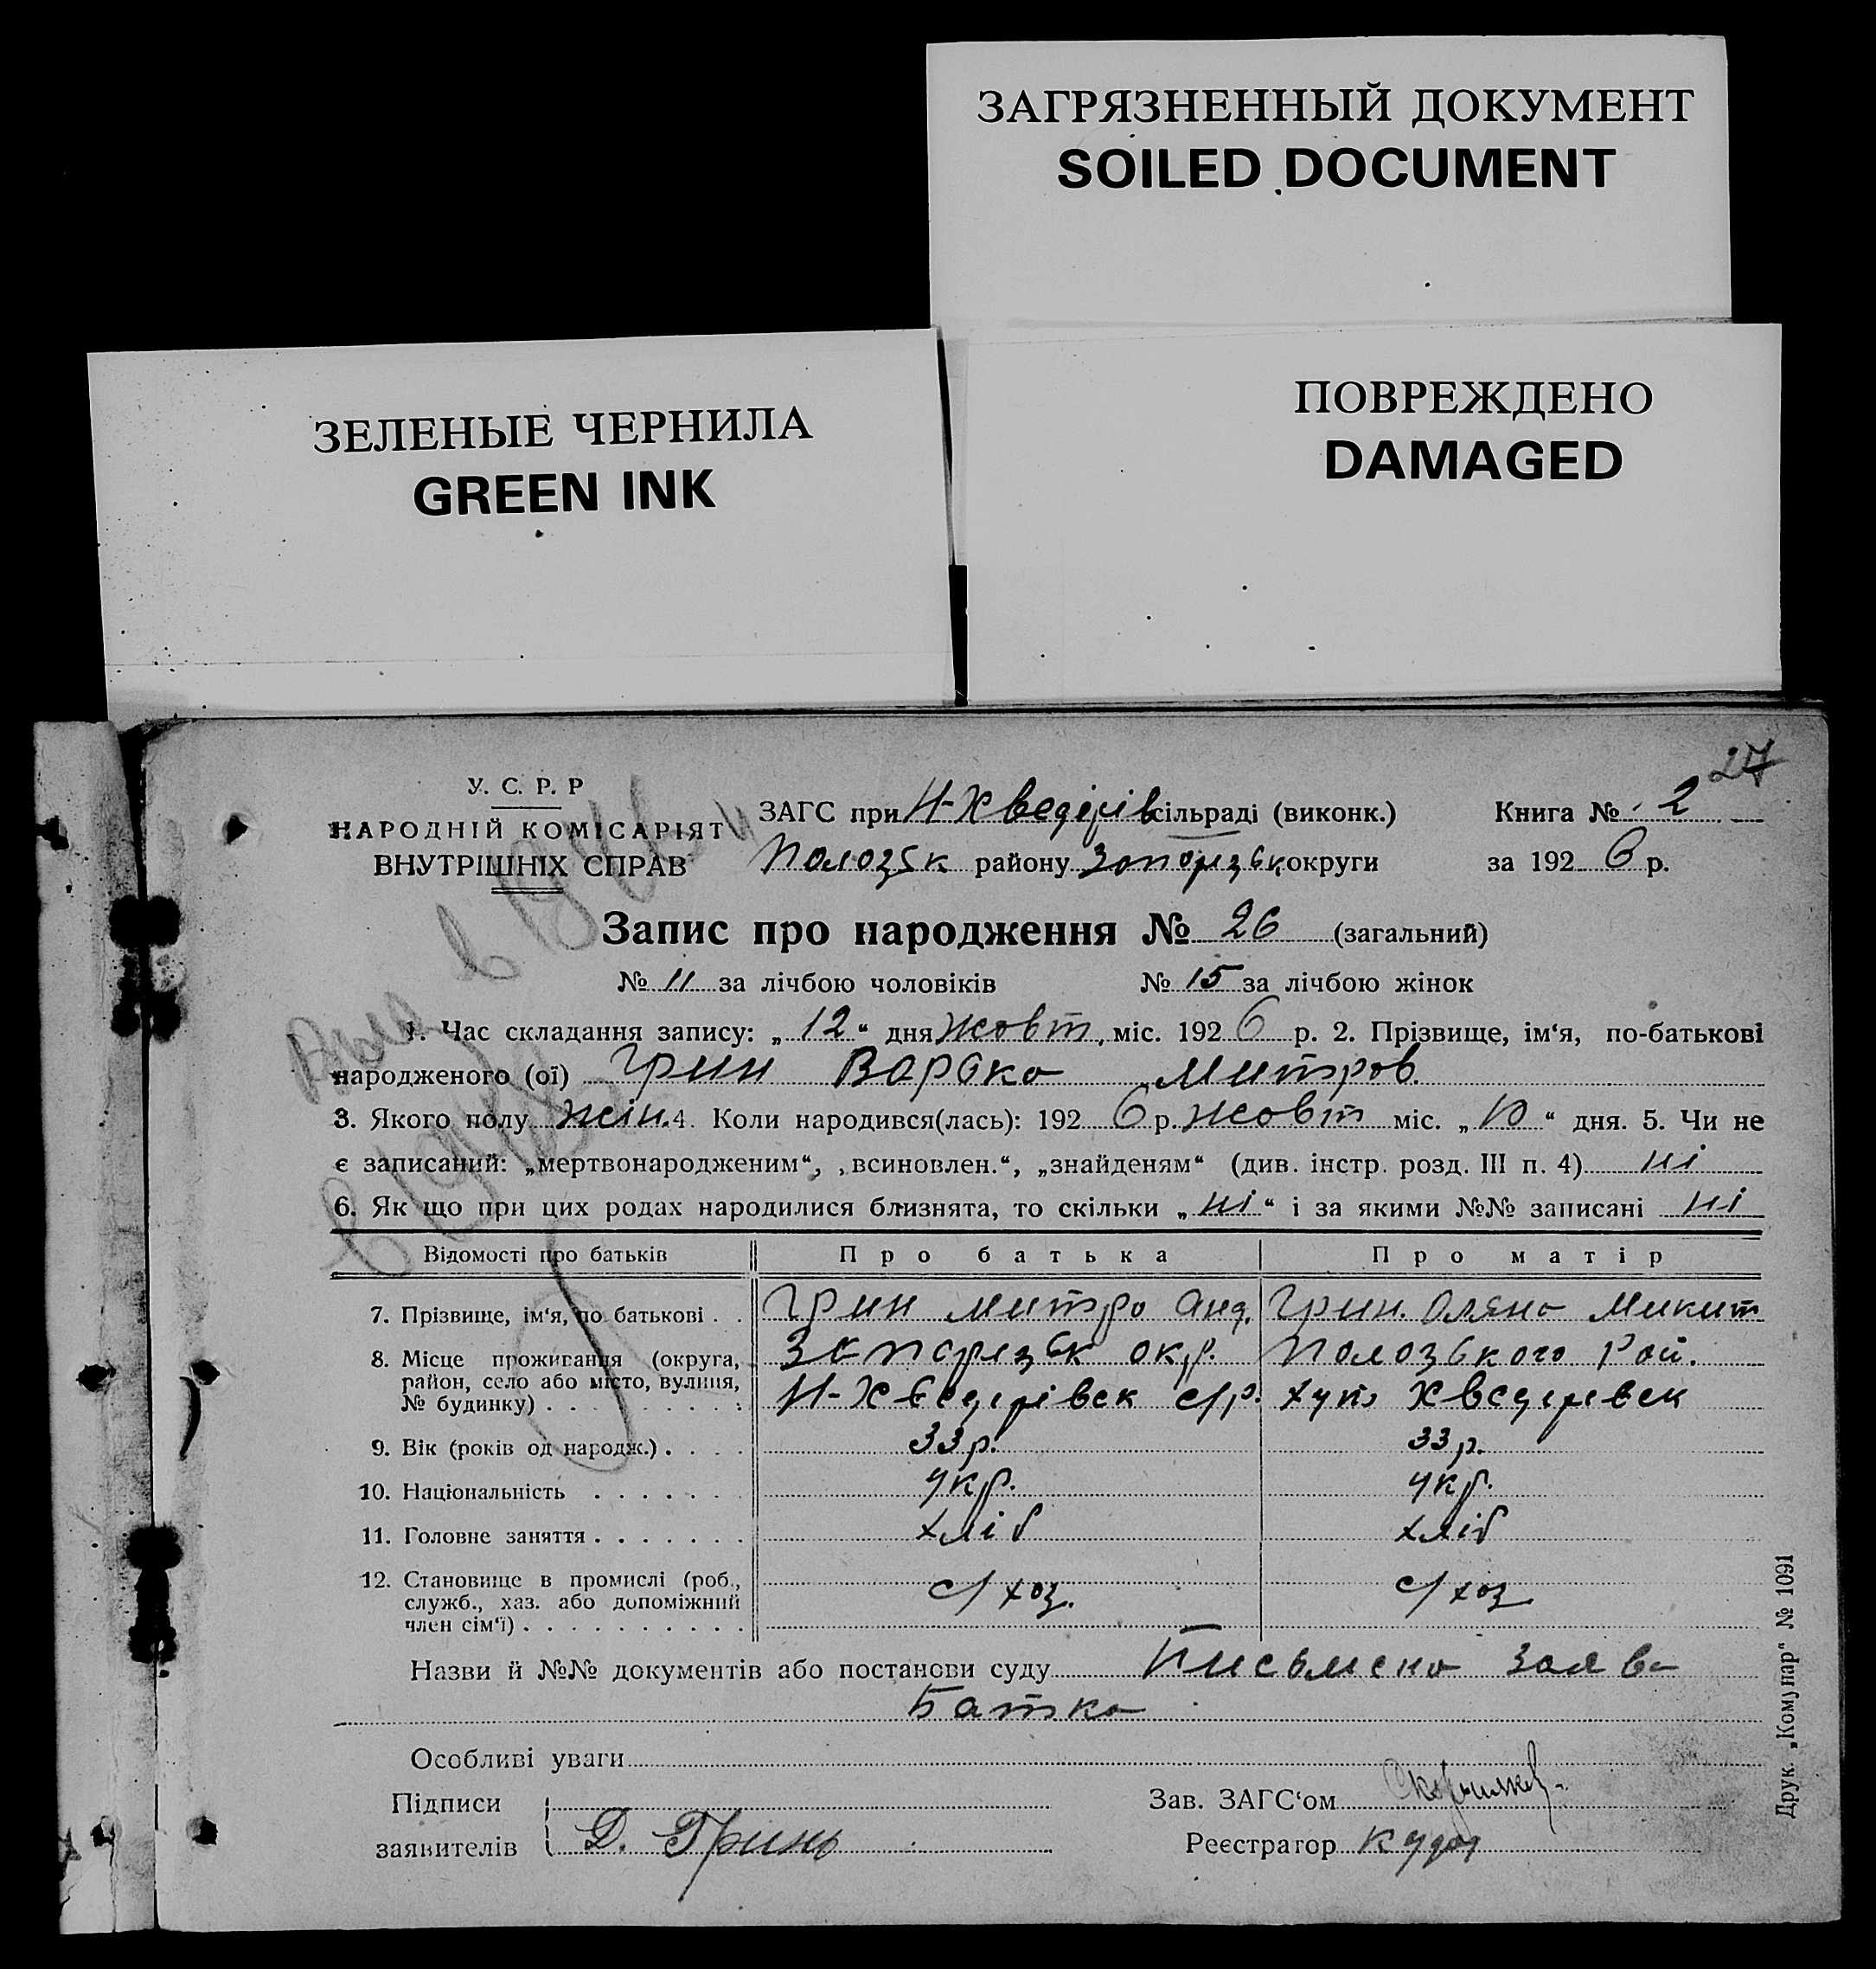 ЗАГРЯЗНЕННЫЙ ДОКУМЕНТ
SOILED DOCUMENT
ЗЕЛЕНЫЕ ЧЕРНИЛА
GREEN INK
ПОВРЕЖДЕНО
DAMAGED
27
У. С. Р. Р
НАРОДНІЙ КОМІСАРІЯТ
ВНУТРІШНІХ СПРАВ
ЗАГС при Н-Хведерів сільраді (виконк.)
Полозьк району Запорізьк округи
Книга № 2
за 1926 р.
Запис про народження № 26 (загальний)
№ 11 за лічбою чоловіків № 15 за лічбою жінок
1. Час складання запису: „12“ дня жовт. міс. 1926 р. 2. Прізвище, ім‘я, по-батькові
народженого (ої) Грин Варька Митров.
3. Якого полу жін. 4. Коли народився(лась): 1926 р. жовт міс. „10“ дня. 5. Чи не
є записаний: „мертвонародженим“, „всиновлен.“, „знайденям“ (див. інстр. розд. III п. 4) ні
6. Як що при цих родах народилися близнята, то скільки „ні“ і за якими №№ записані ні
Відомості про батьків Про батька Про матір
7. Прізвище, ім‘я, по батькові . . Грин Митро Анд. Грин. Оляна Микит
8. Місце проживання (округа, Запорізьк окр. Полозького Рай.
район, село або місто, вулиця,
№ будинку) Н-Хведерівськ с/р. хут Хведерівськ
9. Вік (років од народж.) 33 р. 33 р.
10. Національність укр. укр.
11. Головне заняття хліб хліб
12. Становище в промислі (роб., с/хоз. с/хоз
служб., хаз. або допоміжний
член сім‘ї)
Назви й №№ документів або постанови суду Письмена заява
Батка
Особливі уваги
Підписи
заявителів Д. Гринь
Зав. ЗАГС‘ом
Реєстратор
Друк. „Комунар“ № 1091